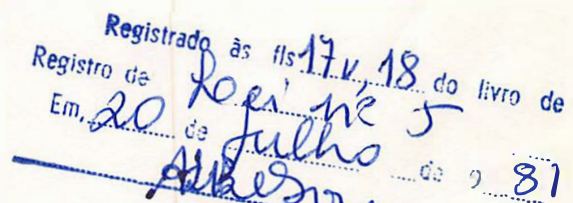 Registrado às fls 17v, 18 do livro de
Registro de Leis nº 5
Em, 20 de Julho de 9 81